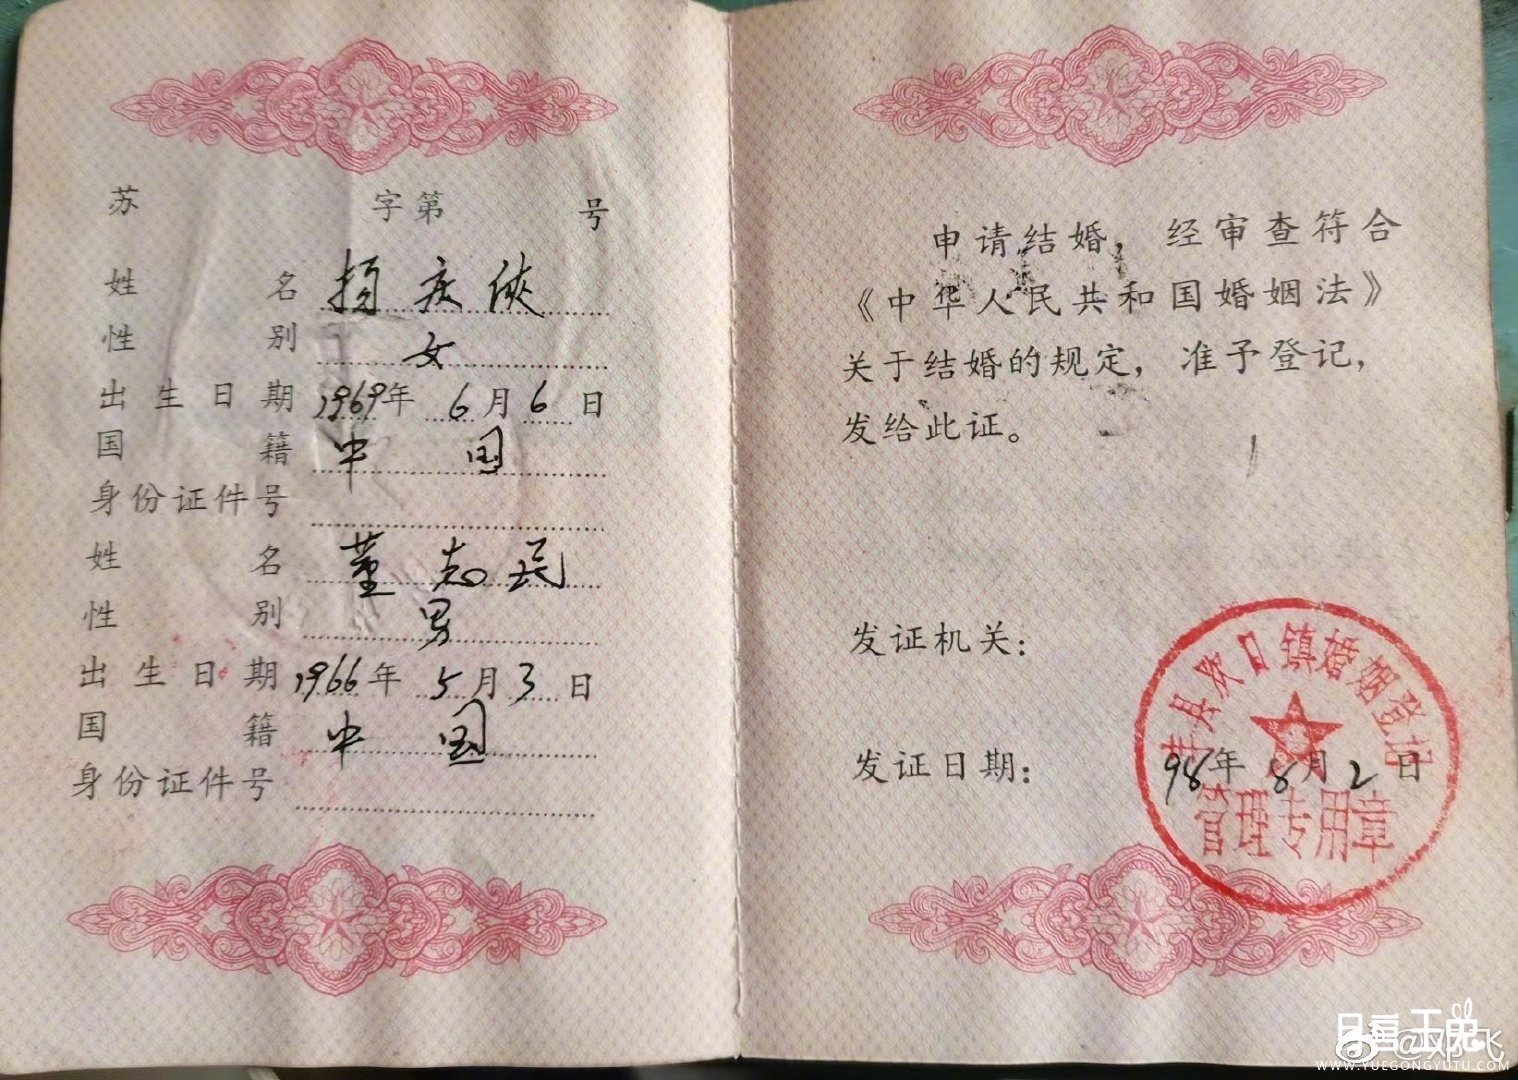 苏 字第 号
姓 名 杨庆侠
性 别 女
出生日期 1969年 6月6日
国 籍 中 国
身份证件号
姓 名 董志民
性 别 男
出生日期 1966年 5月3日
国 籍 中 国
身份证件号
申请结婚，经审查符合
《中华人民共和国婚姻法》
关于结婚的规定，准予登记，
发给此证。
发证机关：
丰县欢口镇婚姻登记
管理专用章
发证日期： 98年8月2日
@邓飞
月宫玉兔
WWW.YUEGONGYUTU.COM